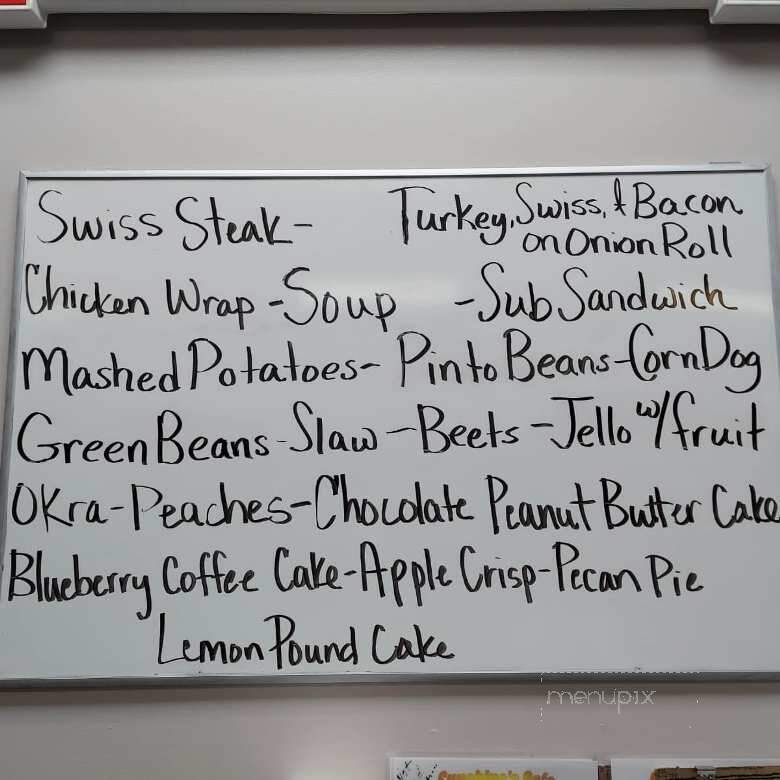 Swiss Steak- Turkey, Swiss, & Bacon
on Onion Roll
Chicken Wrap -Soup -Sub Sandwich
Mashed Potatoes- Pinto Beans-Corn Dog
Green Beans-Slaw-Beets-Jello w/fruit
Okra-Peaches-Chocolate Peanut Butter Cake
Blueberry Coffee Cake-Apple Crisp-Pecan Pie
Lemon Pound Cake
menupix